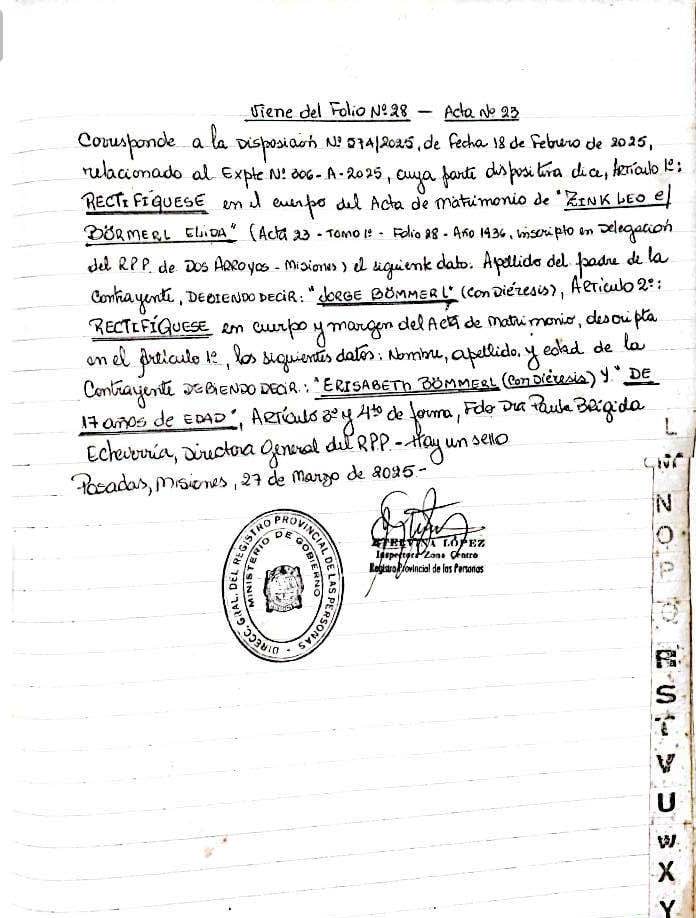 Viene del Folio Nº 28 — Acta Nº 23
Corresponde a la Disposición Nº 574/2025, de Fecha 18 de Febrero de 2025,
relacionado al Expte Nº 306-A-2025, cuya parte dispositiva dice, Artículo 1º:
RECTIFÍQUESE en el cuerpo del Acta de matrimonio de "ZINK LEO c/
BÖRMERL ELIDA" (Acta 23 - Tomo 1º - Folio 28 - Año 1936, inscripto en Delegación
del R.P.P. de DOS ARROYOS - Misiones) el siguiente dato. Apellido del padre de la
Contrayente, DEBIENDO DECIR: "JORGE BÖMMERL" (con Diéresis), Artículo 2º:
RECTIFÍQUESE en cuerpo y margen del Acta de Matrimonio, descripta
en el Artículo 1º, los siguientes datos: Nombre, apellido, y edad de la
Contrayente DEBIENDO DECIR: "ERISABETH BÖMMERL (con Diéresis) y "DE
17 años de EDAD", Artículo 3º y 4to de forma, Fdo Dra Paula Brígida
Echeverría, Directora General del RPP. - Hay un sello
Posadas, Misiones, 27 de Marzo de 2025-
DIRECC. GRAL. DEL REGISTRO PROVINCIAL DE LAS PERSONAS -
MINISTERIO DE GOBIERNO
LÓPEZ
Inspectora Zona Centro
Registro Provincial de las Personas
L
N
O
P
Q
R
S
T
V
U
W
X
Y